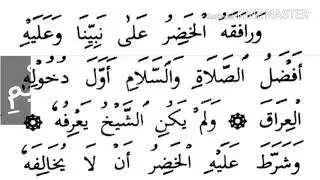 ورافقه الْخَضِرُ عَلَىٰ نَبِيِّنَا وَعَلَيْهِ
أَفْضَلُ الصَّلَاةِ وَالسَّلَامِ أَوَّلَ دُخُولِهِ
الْعِرَاقَ ۞ وَلَمْ يَكُنِ الشَّيْخُ يَعْرِفُهُ ۞
وَشَرَطَ عَلَيْهِ الْخَضِرُ أَنْ لَا يُخَالِفَهُ